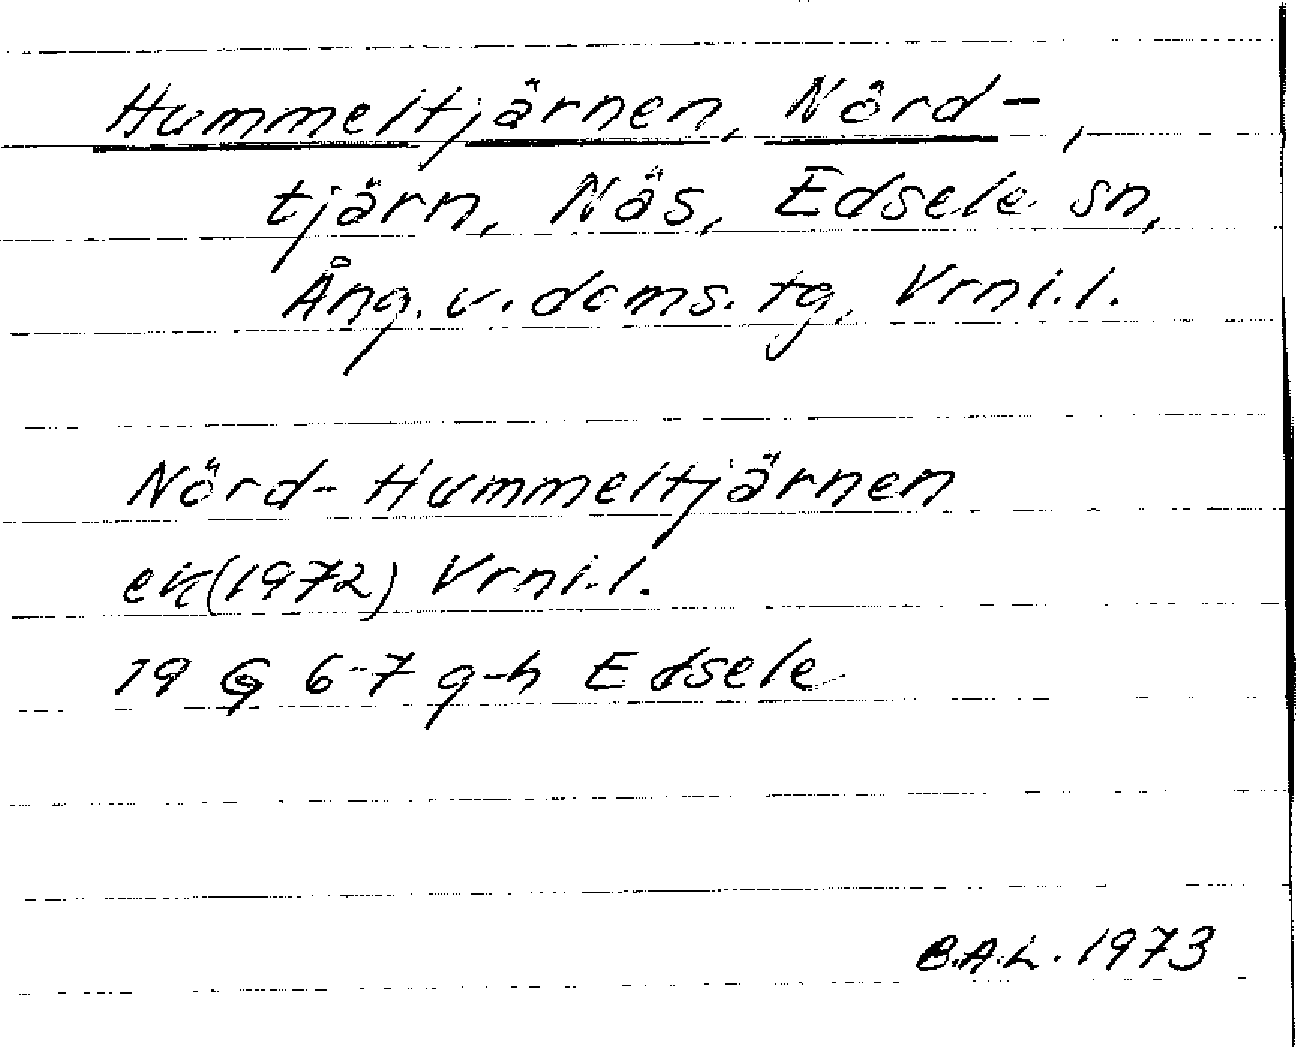 Hummeltjärnen, Nörd-,
tjärn, Näs, Edsele sn,
Ång. v. doms. tg, Vrnl.l.
Nörd-Hummeltjärnen
ek(1972) Vrnl.l.
19 G 6-7 g-h Edsele
B.A.L. 1973